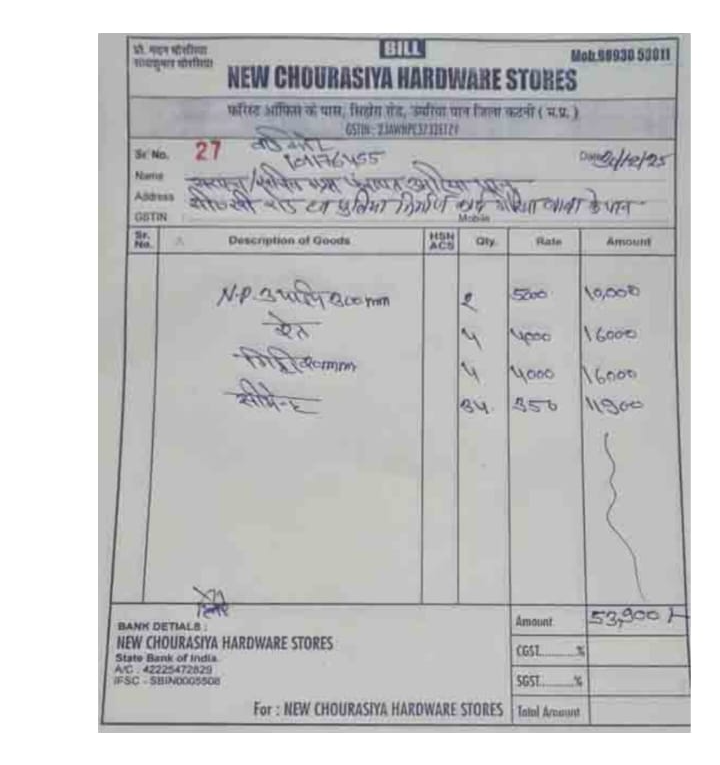 प्रो. मदन चौरसिया
रामकुमार चौरसिया
BILL
Mob.98930 53011
NEW CHOURASIYA HARDWARE STORES
फॉरेस्ट ऑफिस के पास, सिहोरा रोड, उमरिया पान जिला कटनी ( म.प्र. )
GSTIN :
Sr No. 27
101176455
Date 24/12/25
Name सरपंच/सचिव ग्राम पंचायत
Address सी०सी रोड एवं पुलिया निर्माण कार्य के पास
GSTIN
Mobile
Sr. No. Description of Goods HSN ACS Qty. Rate Amount
N.P. 3 पाईप 300 mm 2 5000 10,000
रेत 4 4000 16000
गिट्टी 20mm 4 4000 16000
सीमेन्ट 34. 350 11900
BANK DETIALS :
Amount 53,900/-
NEW CHOURASIYA HARDWARE STORES
State Bank of India.
CGST.........%
A/C - 42225472829
IFSC - SBIN0005508
SGST.........%
For : NEW CHOURASIYA HARDWARE STORES
Total Amount